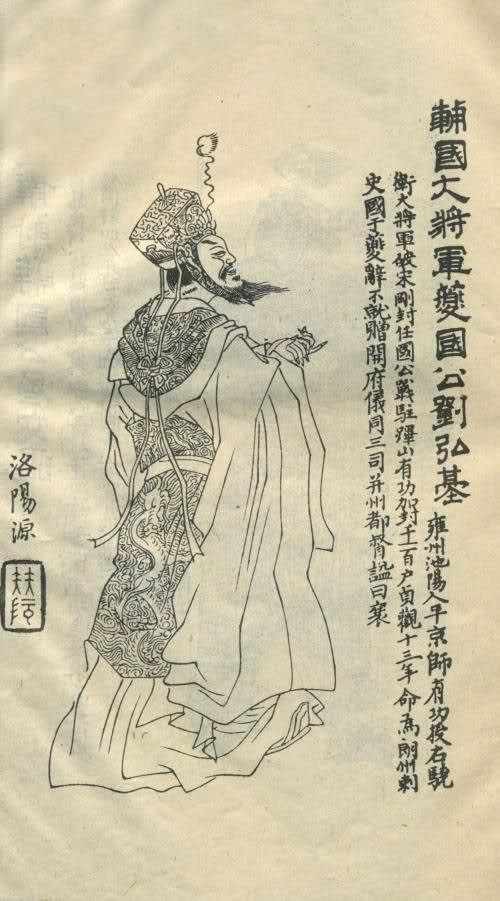 輔國大將軍夔國公劉弘基 雍州池陽人平京師有功授右驍
衛大將軍破宋剛封任國公戰駐蹕山有功加封千一百户貞觀十三年命為朗州刺
史國于夔辭不就贈開府儀同三司并州都督謚曰襄
洛陽源